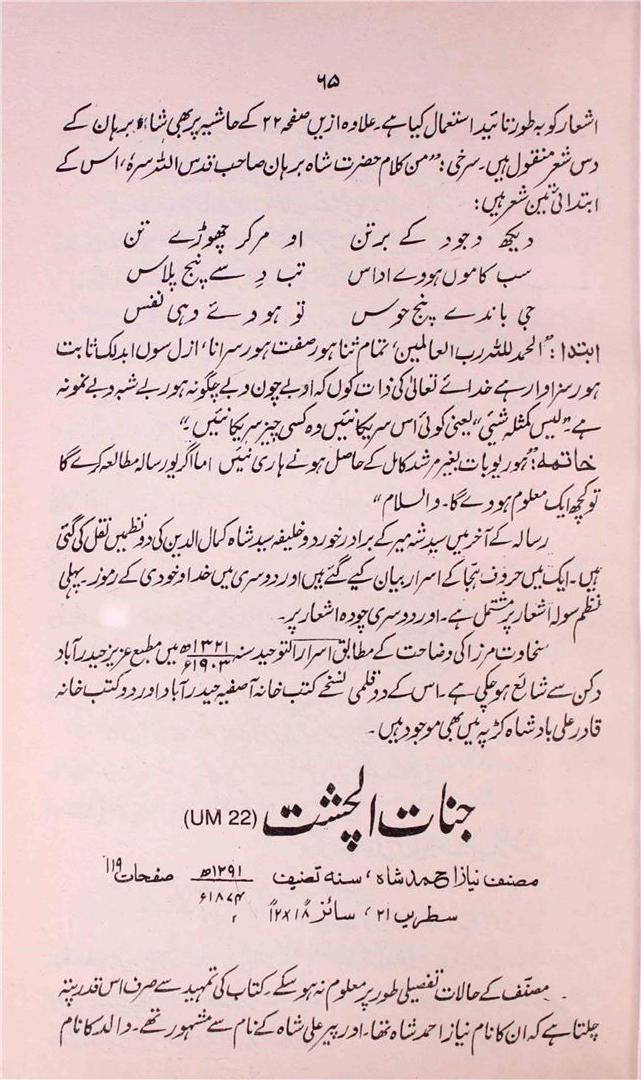 ۶۵
اشعار کو بہ طور تائید استعمال کیا ہے۔ علاوہ ازیں صفحہ ۲۲ کے حاشیہ پر بھی شاہ برہان کے
دس شعر منقول ہیں۔ سرخی: "من کلام حضرت شاہ برہان صاحب قدس اللہ سرہٗ، اس کے
ابتدائی تین شعر ہیں:
دیکھ وجود کے برتن او مرکر چھوڑے تن
سب کاموں ہووے اداس تب دِ سے پنج پلاس
جی باندے پنج حوس تو ہودئے دہی نفس
ابتدا: "الحمد للہ رب العالمین، تمام ثنا ہور صفت ہور سرانا، ازل سوں ابد لک ثابت
ہور سزاوار ہے خدائے تعالیٰ کی ذات کوں کہ او بے چون و بے چگونہ ہور بے شبہ و بے نمونہ
ہے۔ "لیس کمثلہ شیئی" یعنی کوئی اس سریکا نئیں وہ کسی چیز سریکا نئیں۔"
خاتمہ: "ہور یو بات بغیر مرشد کامل کے حاصل ہونے ہاری نئیں اما اگر یو رسالہ مطالعہ کرے گا
تو کچھ ایک معلوم ہودے گا۔ والسلام"
رسالہ کے آخر میں سید شہ میر کے برادر خورد و خلیفہ سید شاہ کمال الدین کی دو نظمیں نقل کی گئی
ہیں۔ ایک میں حروف ہجا کے اسرار بیان کیے گئے ہیں اور دوسری میں خدا و خودی کے رموز۔ پہلی
نظم سولہ اشعار پر مشتمل ہے۔ اور دوسری چودہ اشعار پر۔
سخاوت مرزا کی وضاحت کے مطابق اسرار التوحید سنہ ۱۳۲۱ھ ۱۹۰۳ء میں مطبع عزیز حیدرآباد
دکن سے شائع ہو چکی ہے۔ اس کے دو قلمی نسخے کتب خانہ آصفیہ حیدرآباد اور دو کتب خانہ
قادر علی بادشاہ کڑپہ میں بھی موجود ہیں۔
جنات الچشت (UM 22)
مصنف نیاز احمد شاہ، سنہ تصنیف ۱۲۹۱ھ ۱۸۷۴ء صفحات ۱۱۹
سطریں ۲۱، سائز ۱۸×۱۲
مصنّف کے حالات تفصیلی طور پر معلوم نہ ہو سکے۔ کتاب کی تمہید سے صرف اس قدر پتہ
چلتا ہے کہ ان کا نام نیاز احمد شاہ تھا۔ اور پیر علی شاہ کے نام سے مشہور تھے۔ والد کا نام